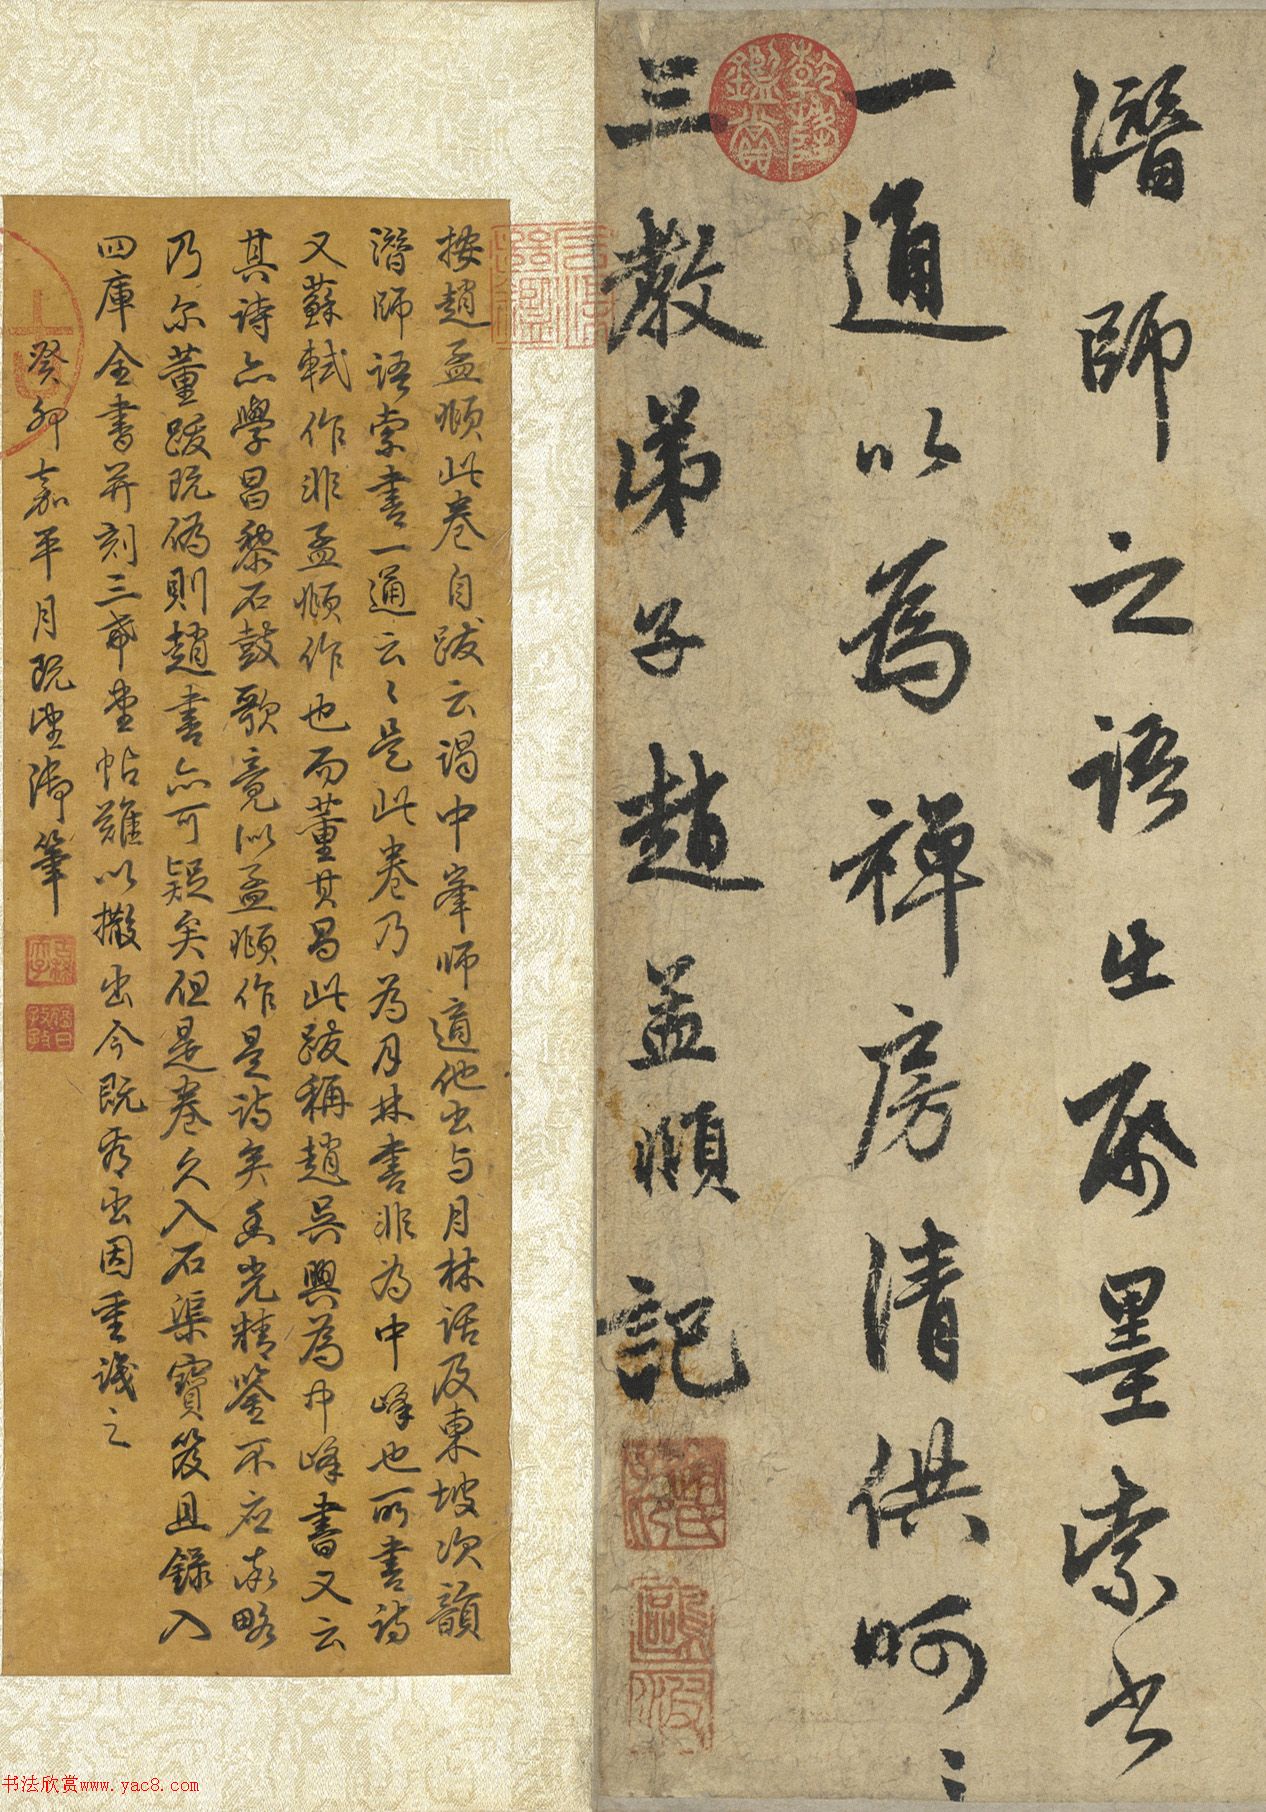 潛師之語出紙墨索書
一通以為禪房清供呵〻
三教弟子趙孟頫記
乾隆鑑賞
趙氏子昂
鷗波
按趙孟頫此卷自跋云謁中峯師適他出与月林話及東坡次韻
潛師語索書一通云〻是此卷乃為月林書非為中峰也所書詩
又蘇軾作非孟頫作也而董其昌此跋稱趙吳興為中峰書又云
其詩亦學昌黎石鼓歌竟似孟頫作是詩矣香光精鑒不應率略
乃尔董跋既偽則趙書亦可疑矣但是卷久入石渠寶笈且錄入
四庫全書并刻三希堂帖難以撤出今既看出因重識之
癸卯嘉平月既望御筆
古稀天子
猶日孜孜
书法欣赏www.yac8.com